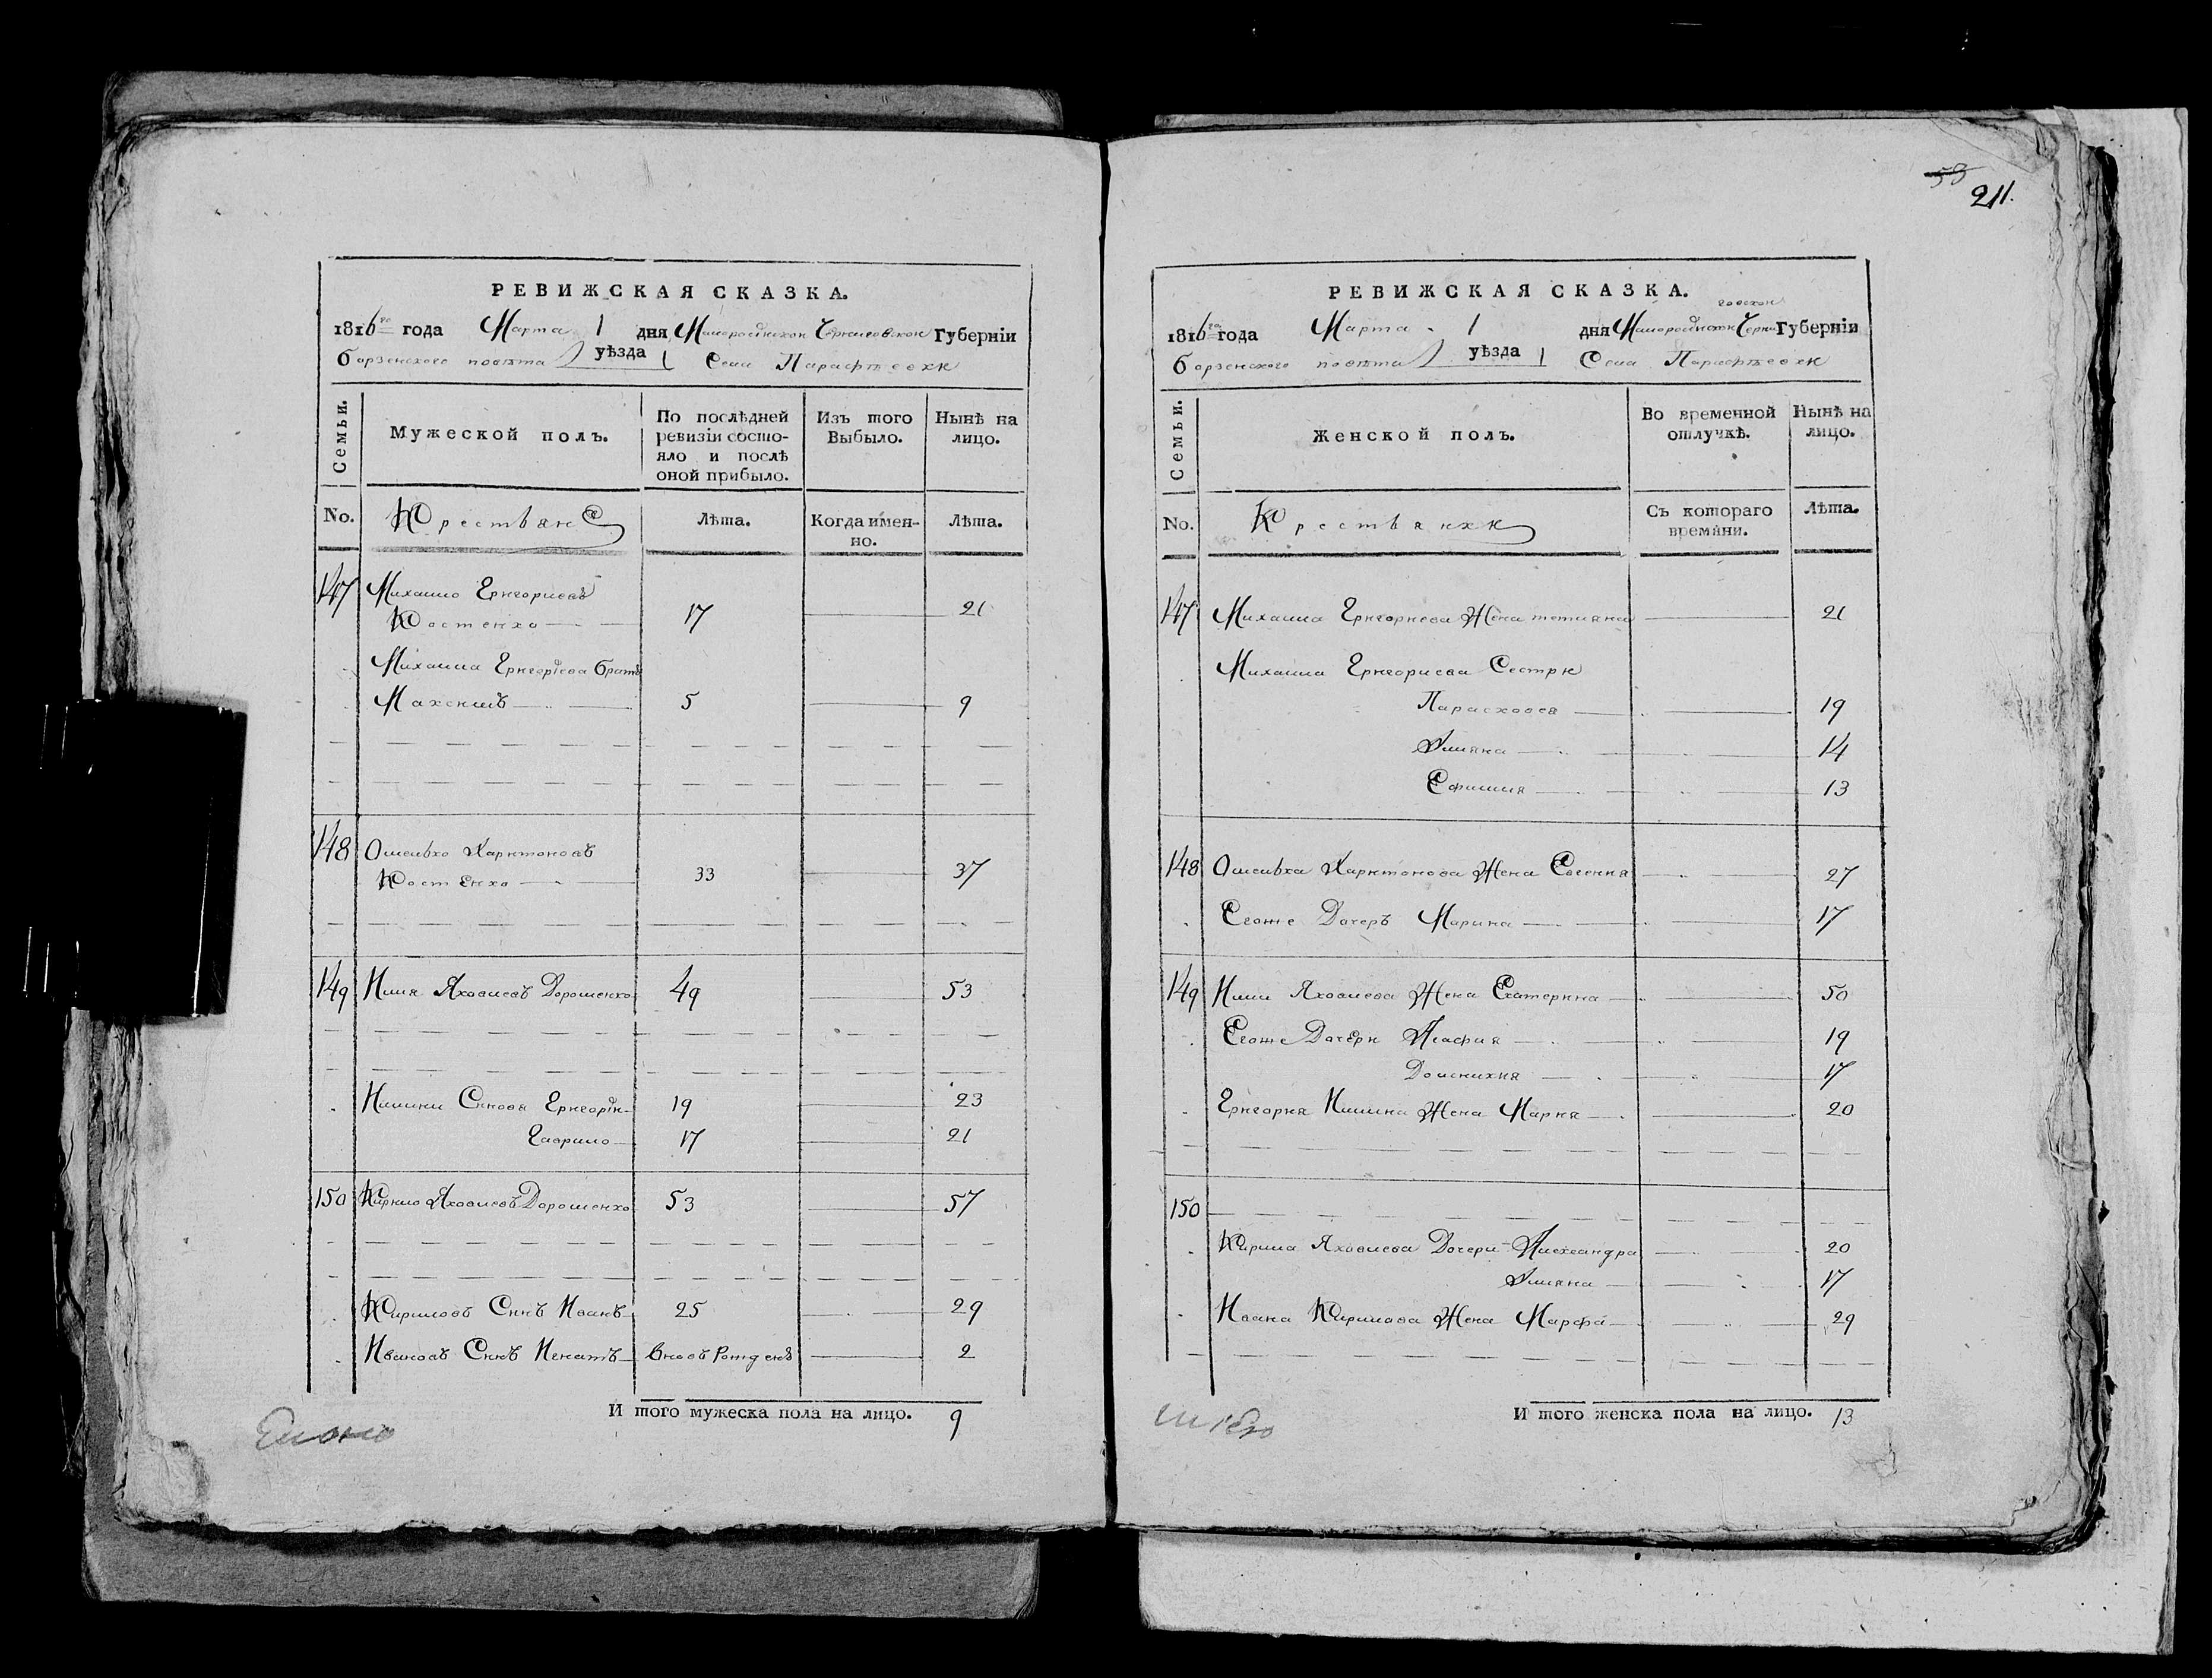 РЕВИЖСКАЯ СКАЗКА.
1816го года Марта 1 дня Малороссійской Черниговской Губерніи
борзенского повѣта уѣзда Села Парафѣевки
Семьи.
Мужеской полъ.
По послѣдней ревизіи состо-
яло и послѣ
оной прибыло.
Изъ того
Выбыло.
Нынѣ на
лицо.
No.
Крестьяне
Лѣта.
Когда имен-
но.
Лѣта.
147 Михайло Григориевъ
Костенко 17 21
Михайла Григориева братъ
Максимъ 5 9
148 Омелько Харитоновъ
Костенко 33 37
149 Илия Яковлевъ Дорошенко 49 53
Илини Сины Григорій 19 23
Гаврило 17 21
150 Кирило Яковлевъ Дорошенко 53 57
Кириловъ Синъ Иванъ 25 29
Ивановъ Синъ Игнатъ вновь рожденъ 2
И того мужеска пола на лицо. 9
53
211.
РЕВИЖСКАЯ СКАЗКА.
1816го года Марта 1 дня Малороссійской Черниговской Губерніи
борзенского повѣта уѣзда Села Парафѣевки
Семьи.
Женской полъ.
Во временной
отлучкѣ.
Нынѣ на
лицо.
No.
Крестьянки
Съ котораго
времяни.
Лѣта.
147 Михайла Григориева Жена Тетияна 21
Михайла Григориева Сестри
Парасковея 19
Улияна 14
Ефимия 13
148 Омелька Харитонова Жена Евгения 27
Егоже Дочерь Марина 17
149 Илии Яковлева Жена Екатерина 50
Егоже Дочери Агафия 19
Домникия 17
Григория Илина Жена Мария 20
150
Кирила Яковлева Дочери Александра 20
Улияна 17
Ивана Кирилова Жена Марфа 29
И того женска пола на лицо. 13